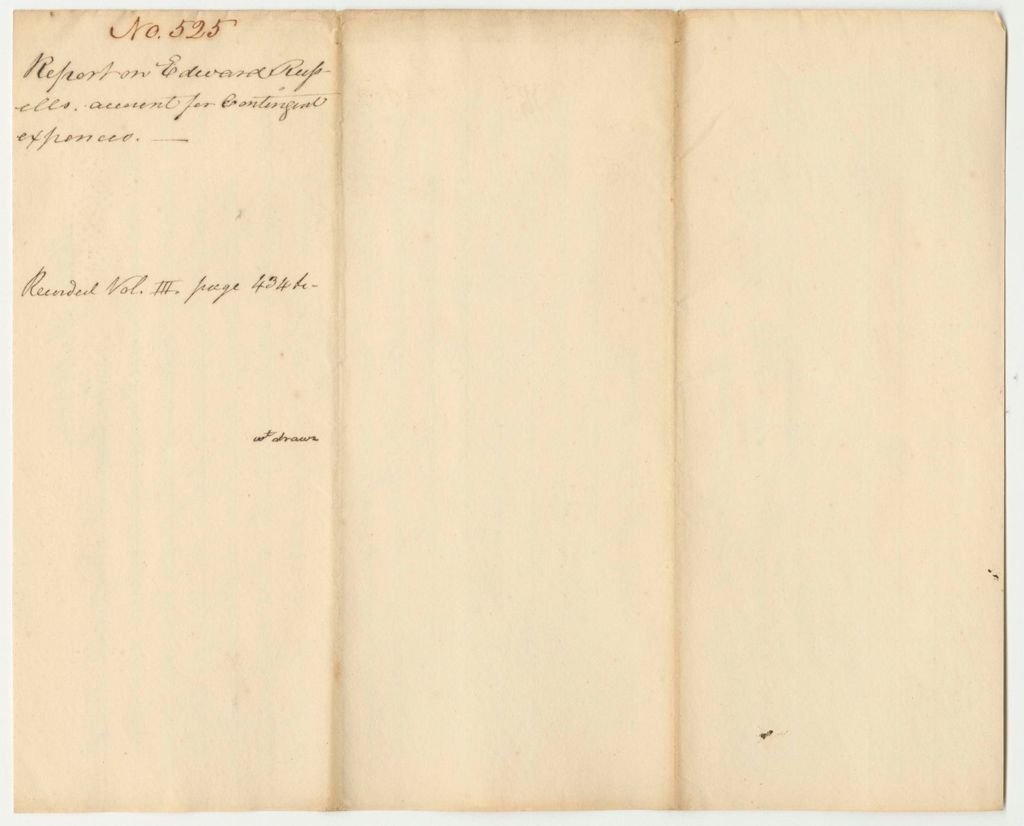 No. 525
Report on Edward Russ-
ells. account for Contingent
expences. —
Recorded Vol. III. page 434
wt drawn